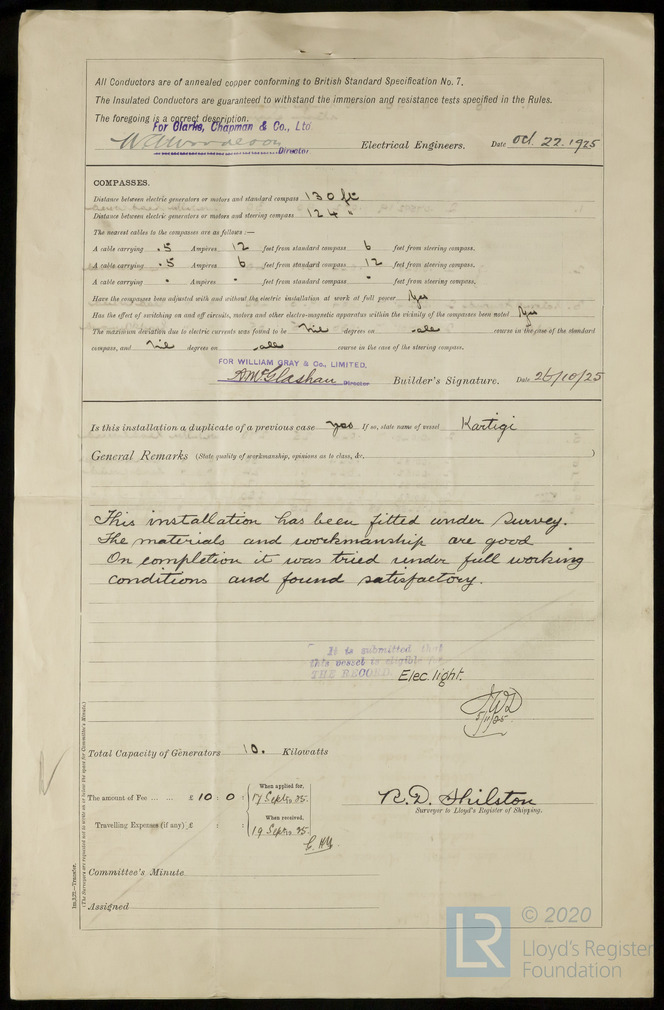 All Conductors are of annealed copper conforming to British Standard Specification No. 7.
The Insulated Conductors are guaranteed to withstand the immersion and resistance tests specified in the Rules.
The foregoing is a correct description.
For Clarke, Chapman & Co., Ltd.
Director Electrical Engineers. Date Oct. 22. 1925
COMPASSES.
Distance between electric generators or motors and standard compass 130 ft
Distance between electric generators or motors and steering compass 124 "
The nearest cables to the compasses are as follows:—
A cable carrying .5 Ampères 12 feet from standard compass 6 feet from steering compass.
A cable carrying .5 Ampères 6 feet from standard compass 12 feet from steering compass.
A cable carrying " Ampères " feet from standard compass " feet from steering compass.
Have the compasses been adjusted with and without the electric installation at work at full power Yes
Has the effect of switching on and off circuits, motors and other electro-magnetic apparatus within the vicinity of the compasses been noted Yes
The maximum deviation due to electric currents was found to be Nil degrees on all course in the case of the standard
compass, and Nil degrees on all course in the case of the steering compass.
FOR WILLIAM GRAY & Co., LIMITED.
A McGlashan Director Builder's Signature. Date 26/10/25
Is this installation a duplicate of a previous case yes If so, state name of vessel Kartigi
General Remarks (State quality of workmanship, opinions as to class, &c. )
This installation has been fitted under survey.
The materials and workmanship are good
On completion it was tried under full working
conditions and found satisfactory.
It is submitted that
this vessel is eligible
THE RECORD. Elec. light.
5/11/25
Total Capacity of Generators 10. Kilowatts
The amount of Fee ... ... £ 10 : 0 : When applied for, 17 Septr. 25.
R. D. Shilston
Surveyor to Lloyd's Register of Shipping.
Travelling Expenses (if any) £ : : When received, 19 Septr. 25.
Committee's Minute
Assigned
1m,3,22.—Transfer.
(The Surveyors are requested not to write on or below the space for Committee's Minute.)
LR © 2020
Lloyd's Register
Foundation